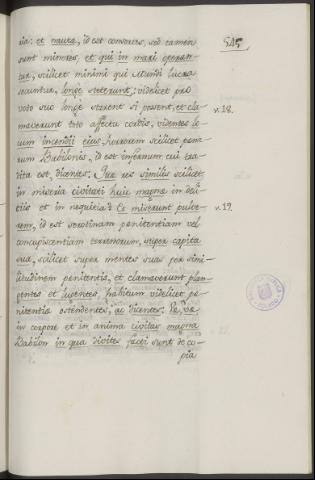 515
ria: et nauta, id est consories, sed tamen
sunt minores, et qui in mari operan-
tur, scilicet minimi qui Mundi lucra
secuntur, longe steterunt; videlicet pro
voto suo longè starent si possent, et cla- v. 18.
maverunt toto affectu cordis, videntes lo-
cum incendii ejus, horrorem scilicet poena-
rum Babilonis, id est infernum cui tra-
dita est, dicentes: Quæ res similis scilicet
in miseria civitati huic magnæ in deli-
tiis et in nequitia? Et miserunt pulve- v. 19.
rem, id est serotinam penitentiam vel
concupiscentiam terrenorum, super capita
sua, scilicet super mentes suas per simi-
litudinem penitentiæ, et clamaverunt plan-
gentes et lugentes, habitum videlicet pe-
nitentiæ ostendentes, ac dicentes: Væ, væ
in corpore et in anima civitas magna
Babilon in qua divites facti sunt de co-
pia